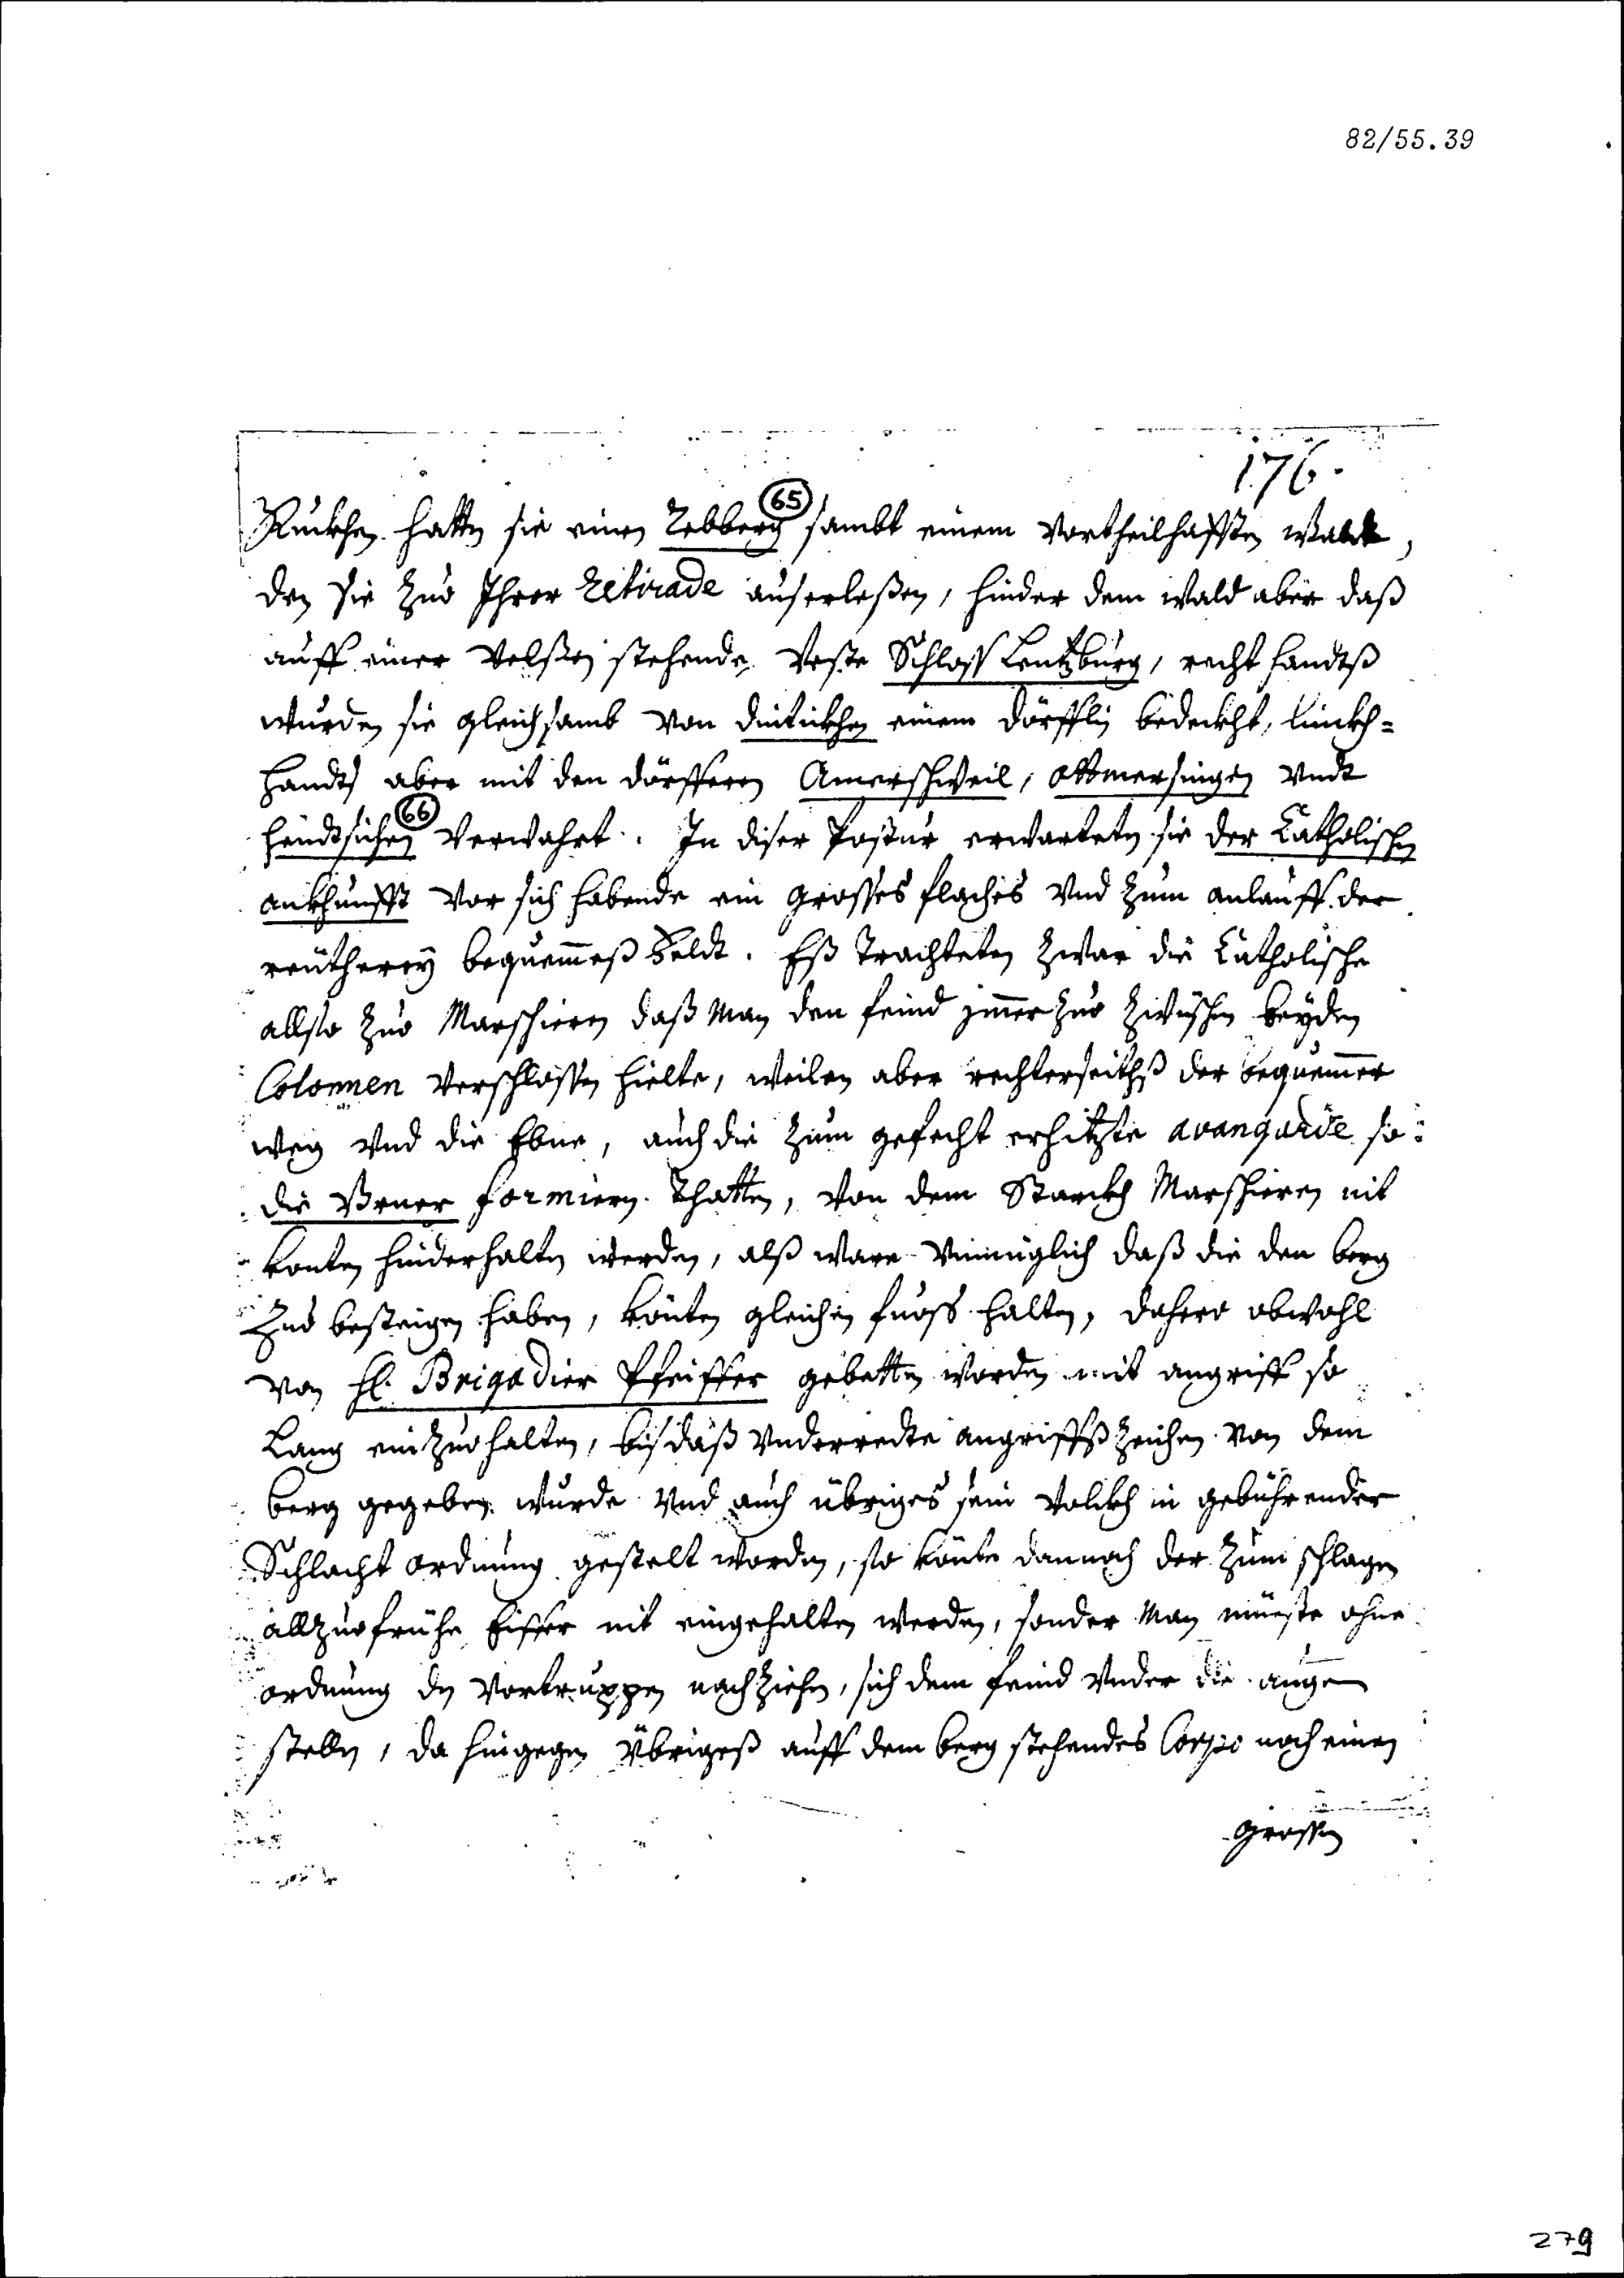 82/55.39
176.
65
Ruckhen hatten sie einen Rebberg sambt einem Vortheilhafften Waldt,
den sie zuo Ihrer Retirade auserleßen, hinder dem Wald aber daß
auff einer Velßen stehende Veste Schloss Lentzburg, recht handtß
wurden sie gleichsamb von dintickhen einem dörfflin bedeckht, linckh=
handts aber mit den dörfferen Amerschweil, Ottmersingen Vndt
66
Hendtsichen Verwahrt. In diser Postur erwarteten sie der Catholischen
ankhunfft Vor sich habende ein grosses flaches Vnd zum anlauff der
reütherey bequemmeß Feldt. Eß Trachteten zwar die Catholische
allso zuo Marschieren daß Man den feind jmmerzuo zwüschen beyden
Colonnen Verschlossen hielte, weilen aber rechterseithß der bequemmer
weg Vnd die Ebne, auch die zum gefecht erhitzte avangarde so
die Vrner formieren Thatten, Von dem Starckh Marschieren nit
konten hinderhalten werden, alß ware Vnmüglich daß die den berg
zuo besteigen haben, könten gleichen fuoss halten, dahero obwohl
Von Hl. Brigadier Pfeiffer gebetten worden mit angriff so
Lang einzuohalten, bis daß Vnderredte angriffßzeichen Von dem
berg gegeben wurde Vnd auch übriges sein Volckh in gebührender
Schlacht ordnung gestelt worden, so könte dannoch der zum schlagen
allzuofrühe Eiffer nit eingehalten werden, sonder Man müeste ohne
ordnung den Vortruppen nachziehen, sich dem feind Vnder die augen
stellen, da hingegen Übrigeß auff dem berg stehendes Corpo noch einen
grossen
279